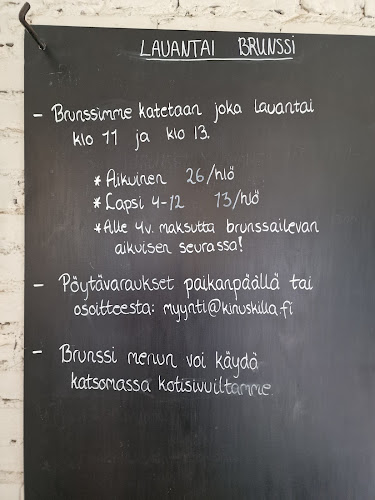 LAUANTAI BRUNSSI
- Brunssimme katetaan joka lauantai
klo 11 ja klo 13.
* Aikuinen 26/hlö
* Lapsi 4-12 13/hlö
* Alle 4v. maksutta brunssailevan
aikuisen seurassa!
- Pöytävaraukset paikanpäällä tai
osoitteesta: myynti@kinuskilla.fi
- Brunssi menun voi käydä
katsomassa kotisivuiltamme